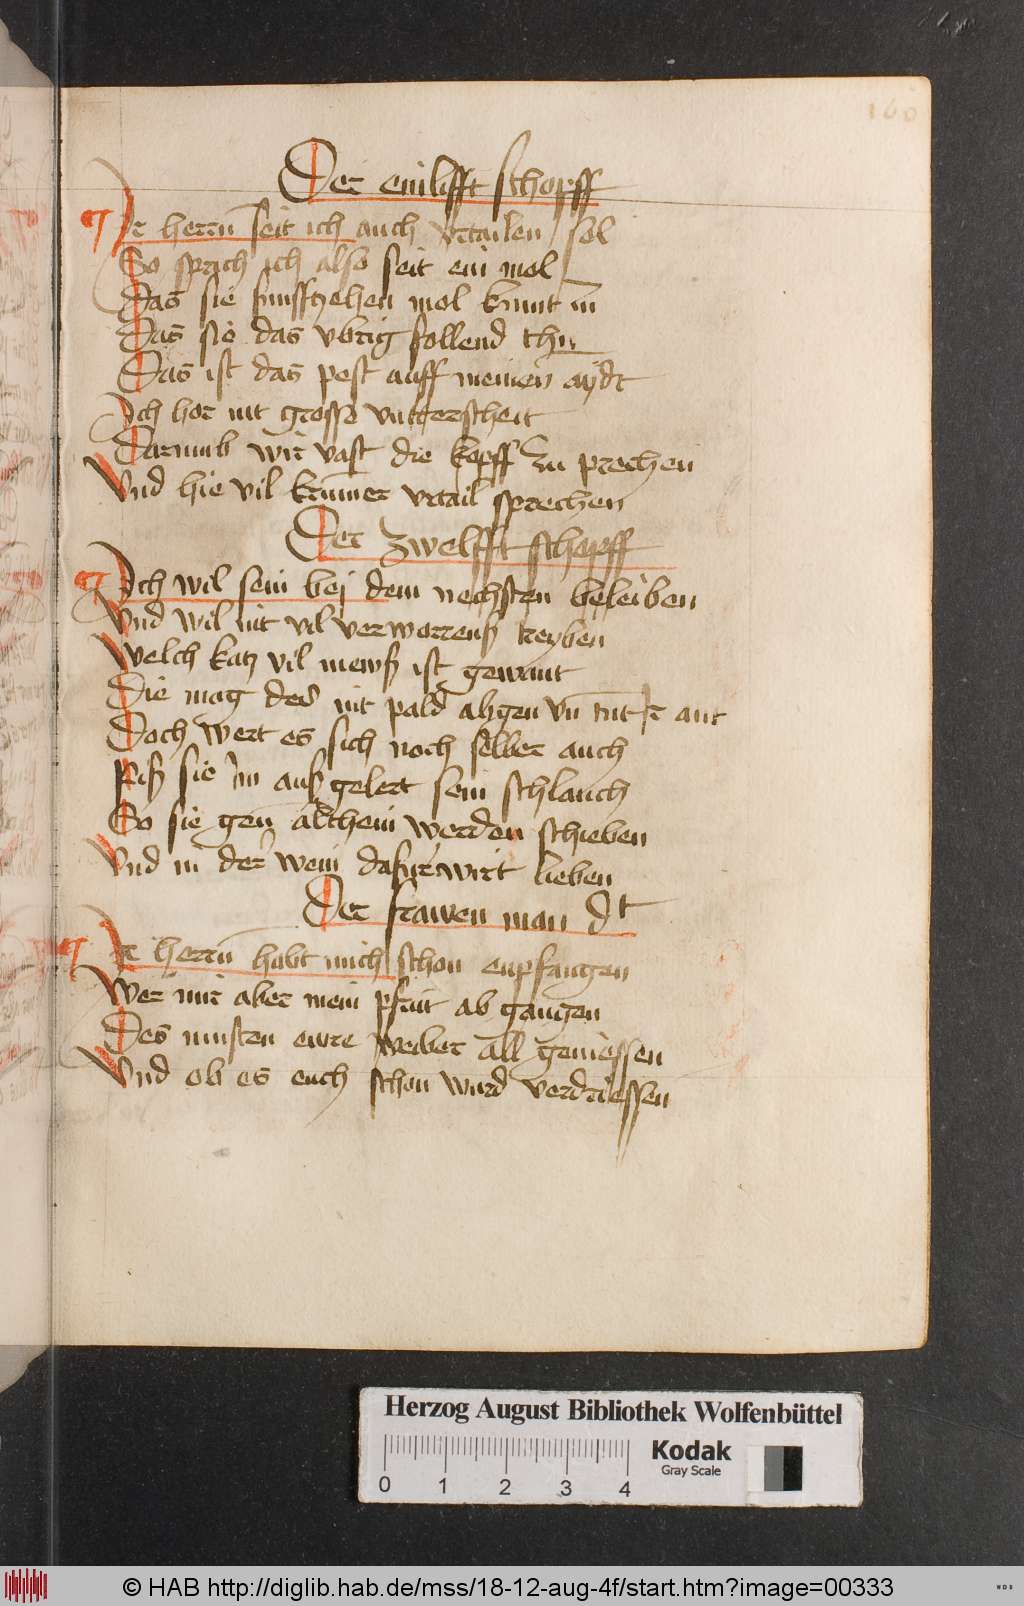 160
Der einlifft schopff
Ir herrn seit ich auch vrtailen sol
So sprich ich also seit ein mol
Das sie funffzehen mol kumt in
Das sie das vbrig follend thu
Das ist das pest auff meinen aydt
Ich hor nit grosse vnterscheit
Darumb wir vast die kopff zu prechen
Vnd hie vil krummer vrtail sprechen
Der zwelfft schopff
Ich wil sein bej dem nechsten beleiben
Vnd wil nit vil verworrenß treyben
Welch katz vil mewß ist gewant
Die mag des nit pald abgen vn tut ir ant
Doch wert es sich noch selber auch
Piß sie im auß gelert sein schlauch
So sie gen alchem werden schieben
Vnd in der wein dafur wirt lieben
Der frawen man dt
Ir herrn habt mich schon enpfangen
Wer mir aber mein pfrut ab gangen
Des musten ewre weiber all geniessen
Vnd ob es euch schon wurd verdriessen
Herzog August Bibliothek Wolfenbüttel
Kodak
Gray Scale
0 1 2 3 4
© HAB http://diglib.hab.de/mss/18-12-aug-4f/start.htm?image=00333